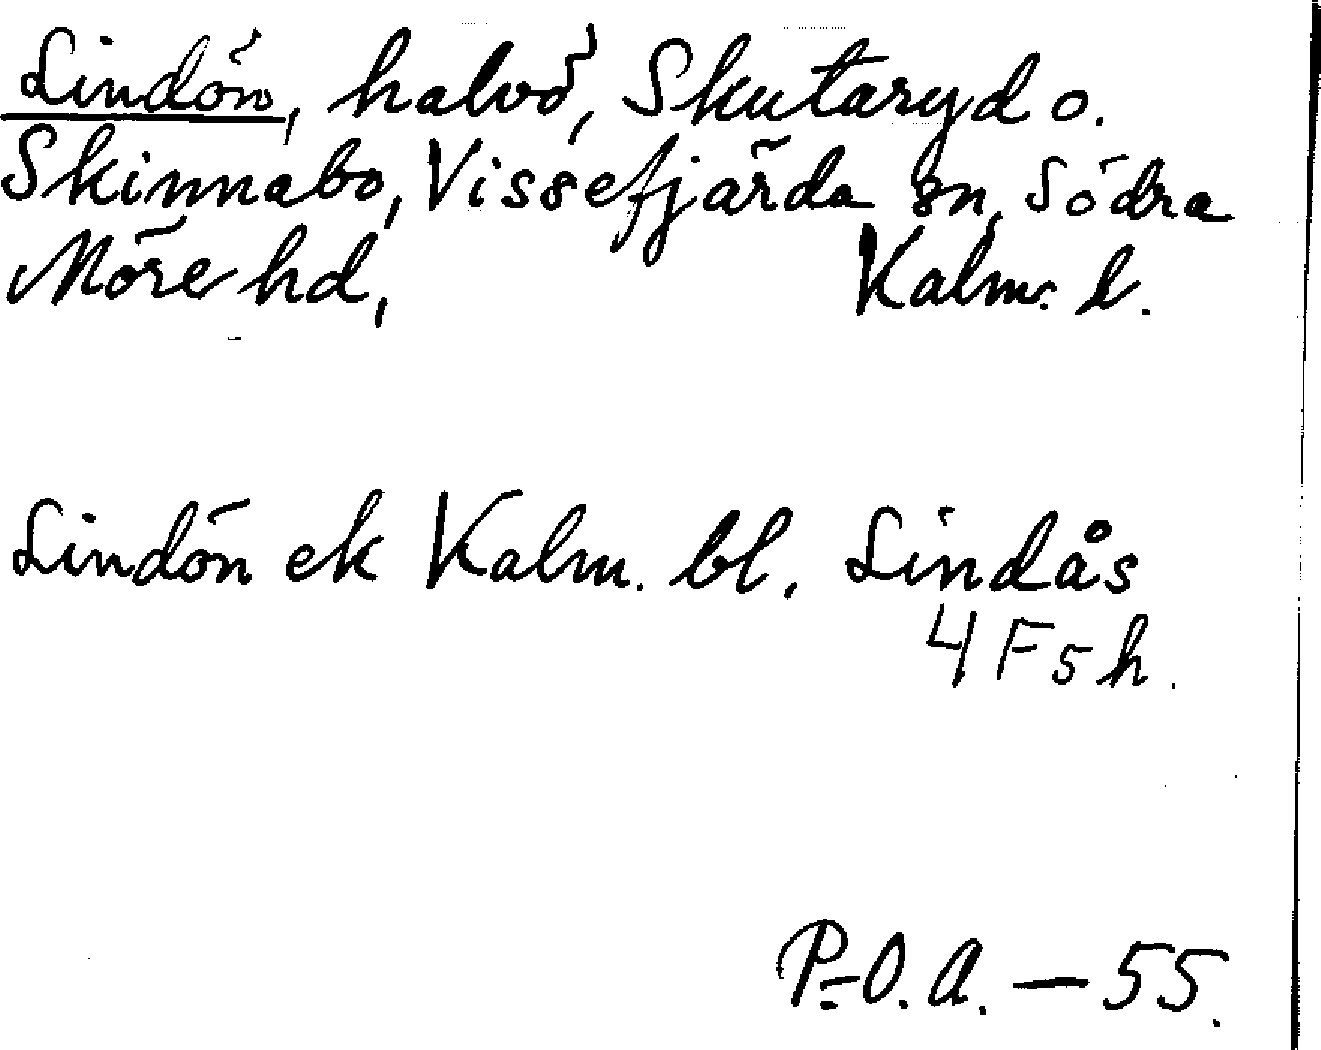 Lindön, halvö, Skutaryd o.
Skinnabo, Vissefjärda sn, Södra
Möre hd, Kalm. l.
Lindön ek Kalm. bl. Lindås
4 F 5 h.
P.-O. A. — 55.